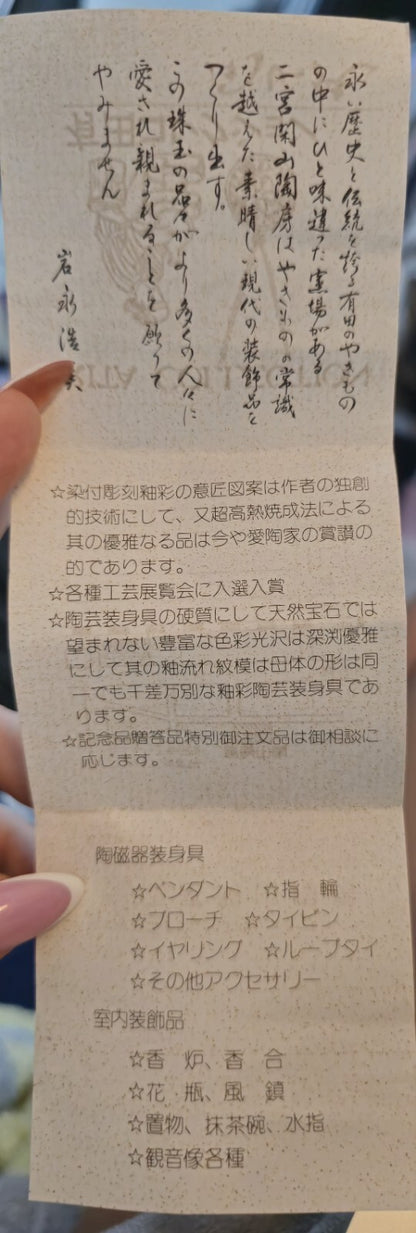 永い歴史と伝統を誇る有田のやきもの
の中にひと味違った窯場がある
二宮閑山陶房はやきものの常識
を越えた素晴しい現代の装飾品を
つくり出す。
この珠玉の品々がより多くの人々に
愛され親まれることを願って
やみません
岩永浩
☆染付彫刻釉彩の意匠図案は作者の独創
的技術にして、又超高熱焼成法による
其の優雅なる品は今や愛陶家の賞讃の
的であります。
☆各種工芸展覧会に入選入賞
☆陶芸装身具の硬質にして天然宝石では
望まれない豊富な色彩光沢は深渕優雅
にして其の釉流れ紋模は母体の形は同
一でも千差万別な釉彩陶芸装身具であ
ります。
☆記念品贈答品特別御注文品は御相談に
応じます。
陶磁器装身具
☆ペンダント ☆指 輪
☆ブローチ ☆タイピン
☆イヤリング ☆ループタイ
☆その他アクセサリー
室内装飾品
☆香 炉、香 合
☆花 瓶、風 鎮
☆置物、抹茶碗、水指
☆観音像各種